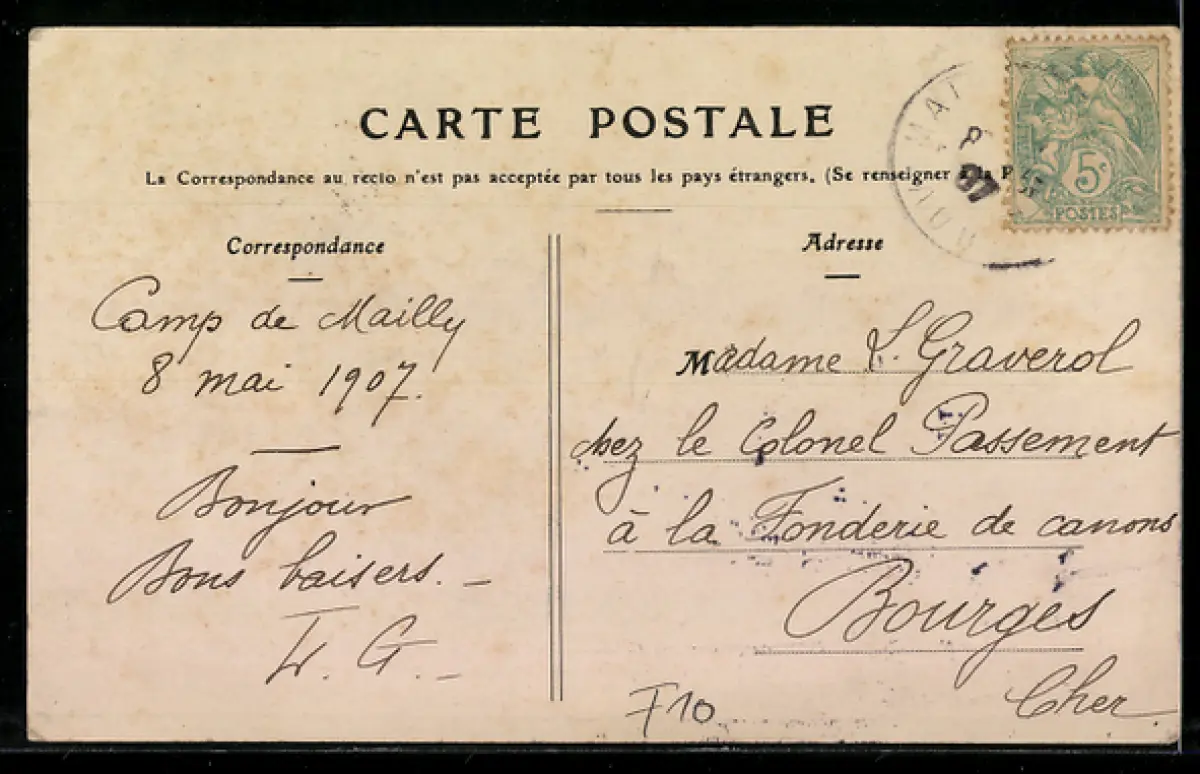 CARTE POSTALE
La Correspondance au recto n'est pas acceptée par tous les pays étrangers. (Se renseigner à la P
Correspondance
Camp de Mailly
8 mai 1907.
Bonjour
Bons baisers. _
L. G. _
Adresse
Madame L. Graverol
chez le Colonel Passement
à la Fonderie de canons
Bourges
Cher.
F10
5c
POSTES
07